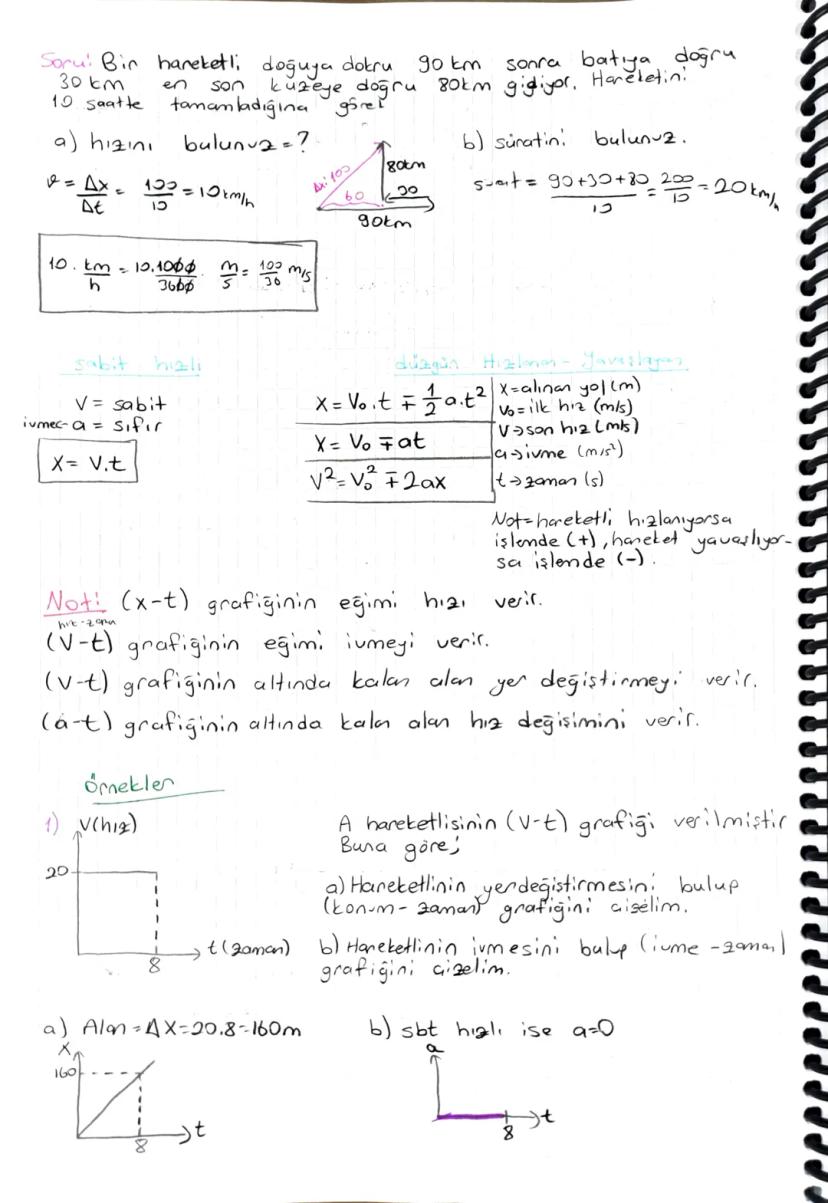 Soru: Bir hareketli doğuya dokru 90 km sonra batıya doğru
30 km en son kuzeye doğru 80km gidiyor. Hareketini
10 saatte tamamladığına göre;
a) hızını bulunuz=?
b) süratini bulunuz.
v = Δx/Δt = 100/10 = 10 km/h
Δx: 100
80km
60
30
90km
sürat = 90+30+80/10 = 200/10 = 20 km/h
10. km/h = 10.1000/3600 . m/s = 100/36 m/s
sabit hızlı
düzgün Hızlanan - Yavaşlayan
V = sabit
ivme←a = sıfır
X = V.t
X = V₀.t ∓ 1/2 a.t²
X = V₀ ∓ at
V² = V₀² ∓ 2ax
X=alınan yol (m)
V₀=ilk hız (m/s)
V→son hız (m/s)
a→ivme (m/s²)
t→zaman (s)
Not=hareketli hızlanıyorsa
işlemde (+), hareket yavaşlıyor-
sa işlemde (-).
Not: (x-t) grafiğinin eğimi hızı verir.
hız-zaman
(V-t) grafiğinin eğimi ivmeyi verir.
(v-t) grafiğinin altında kalan alan yer değiştirmeyi verir.
(a-t) grafiğinin altında kalan alan hız değişimini verir.
Örnekler
1) V(hız)
20
8
t(zaman)
A hareketlisinin (V-t) grafiği verilmiştir
Buna göre;
a) Hareketlinin yerdeğiştirmesini bulup
(konum-zaman) grafiğini çizelim.
b) Hareketlinin ivmesini bulup (ivme-zaman)
grafiğini çizelim.
a) Alan = ΔX = 20.8 = 160m
X
160
8
t
b) sbt hızlı ise a=0
a
8
t